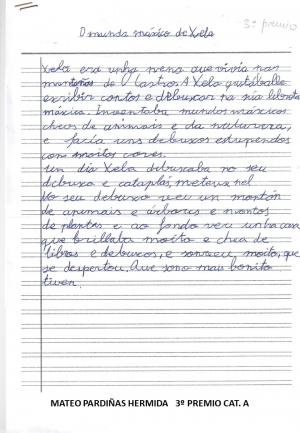 3º premio
O mundo máxico de Xela
Xela era unha nena que vivía nas
montañas de Castro. A Xela gustaballe
escribir contos e debuxar na súa libreta
máxica. Inventaba mundos máxicos
cheos de animais e da natureza,
e facía uns debuxos estupendos
con moitos cores.
Un día Xela debuxaba no seu
debuxo e cataplás meteuse nel
No seu debuxo veu un montón
de animais e árbores e montos
de plantas e ao fondo veu unha casa
que brillaba moito e chea de
libros e debuxos, e sorreu moito, que
se despertou. Que sono mais bonito
tiven.
MATEO PARDIÑAS HERMIDA 3º PREMIO CAT. A